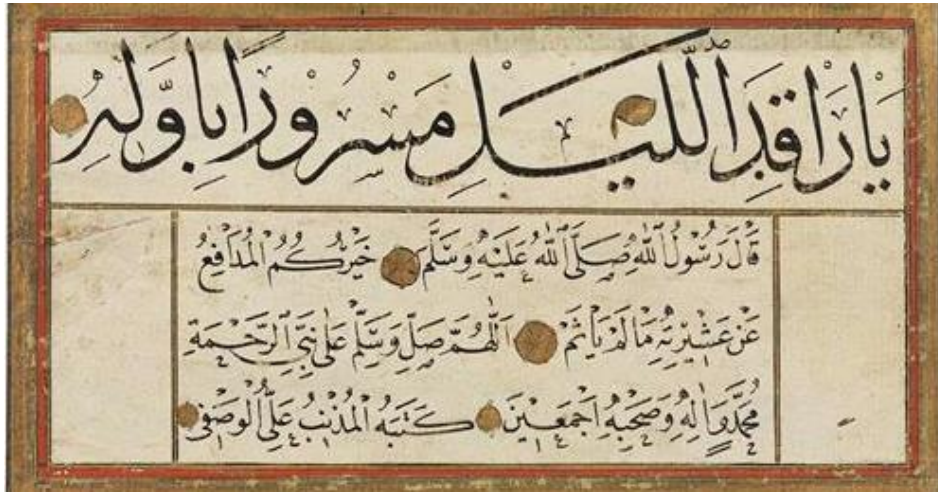 يَا رَاقِدَ اللَّيْلِ مَسْرُورًا بِأَوَّلِهِ
قَالَ رَسُولُ اللّٰهِ صَلَّى اللّٰهُ عَلَيْهِ وَسَلَّمَ خَيْرُكُمُ الْمُدَافِعُ
عَنْ عَشِيْرَتِهِ مَا لَمْ يَأْثَمْ اَللّٰهُمَّ صَلِّ وَسَلِّمْ عَلٰى نَبِيِّ الرَّحْمَةِ
مُحَمَّدٍ وَاٰلِهِ وَصَحْبِهِ اَجْمَعِيْنَ كَتَبَهُ الْمُذْنِبُ عَلِيُّ الْوَصْفِي